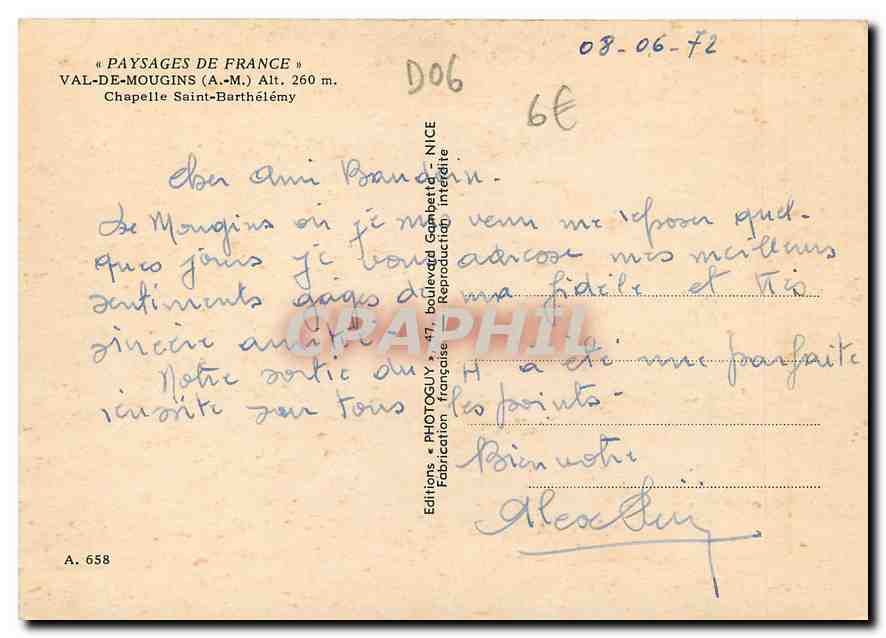 « PAYSAGES DE FRANCE »
VAL-DE-MOUGINS (A.-M.) Alt. 260 m.
Chapelle Saint-Barthélémy
D06
08-06-72
6€
Cher Ami Baudoin.
De Mougins où je suis venu me reposer quel-
ques jours je vous adresse mes meilleurs
sentiments gages de ma fidèle et très
sincère amitié.
Notre sortie du 4 a été une parfaite
réussite sur tous les points.
Bien votre
Alex
Editions « PHOTOGUY », 47, boulevard Gambetta - NICE
Fabrication française — Reproduction interdite
CPAPHIL
A. 658